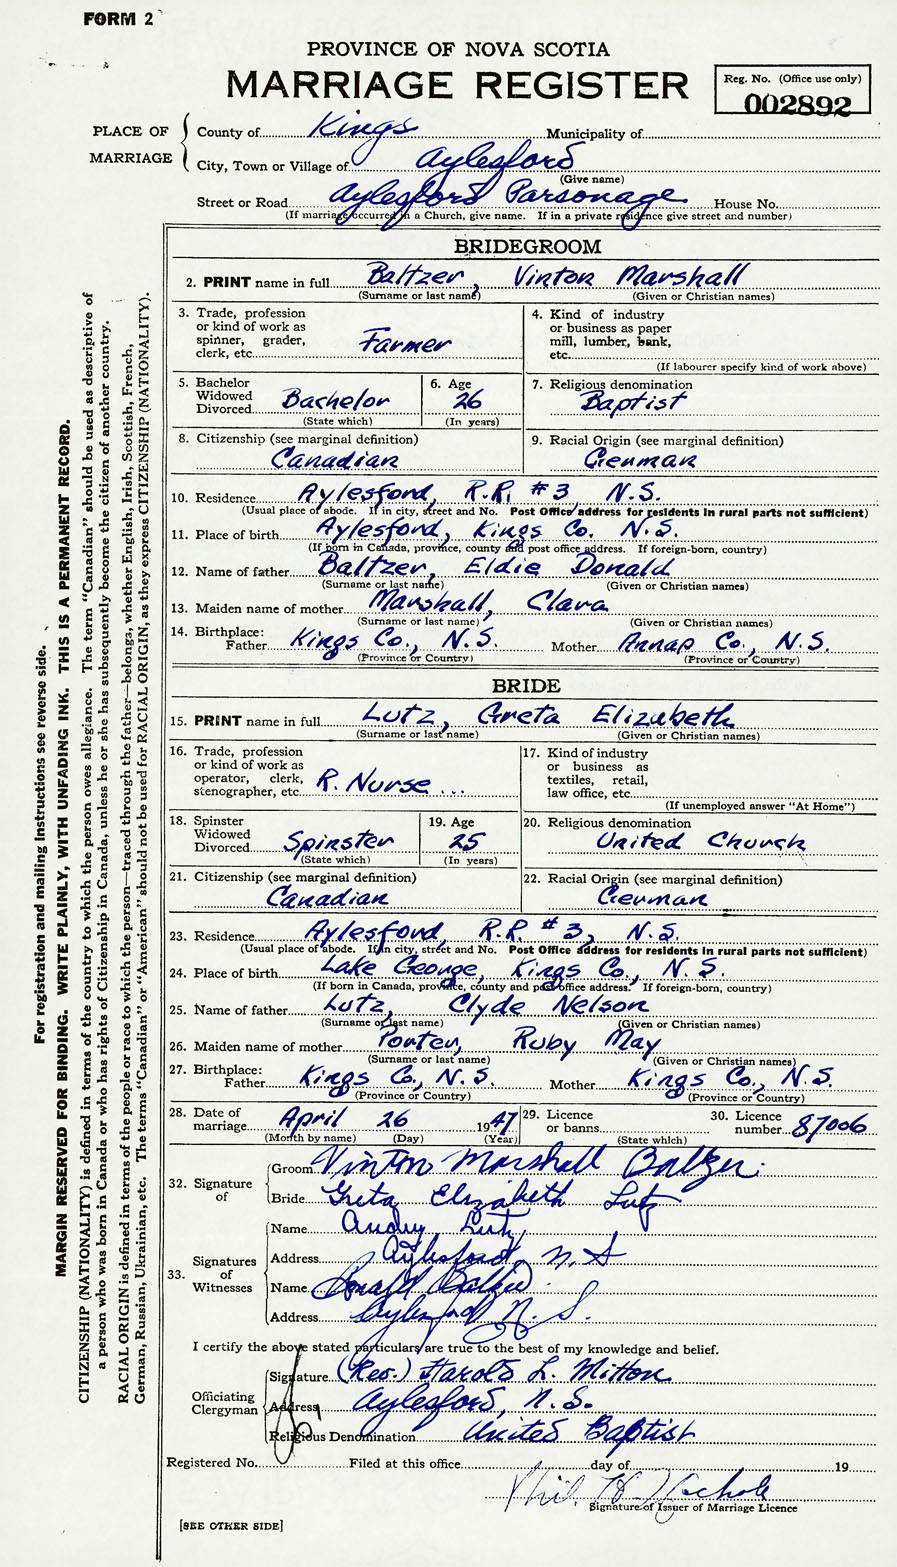 FORM 2
PROVINCE OF NOVA SCOTIA
MARRIAGE REGISTER
Reg. No. (Office use only)
002892
PLACE OF MARRIAGE
County of Kings Municipality of
City, Town or Village of Aylesford
(Give name)
Street or Road Aylesford Parsonage House No.
(If marriage occurred in a Church, give name. If in a private residence give street and number)
BRIDEGROOM
2. PRINT name in full Baltzer, Vinton Marshall
(Surname or last name) (Given or Christian names)
3. Trade, profession
or kind of work as
spinner, grader,
clerk, etc. Farmer
4. Kind of industry
or business as paper
mill, lumber, bank,
etc.
(If labourer specify kind of work above)
5. Bachelor
Widowed
Divorced Bachelor
(State which)
6. Age
26
(In years)
7. Religious denomination
Baptist
8. Citizenship (see marginal definition)
Canadian
9. Racial Origin (see marginal definition)
German
10. Residence Aylesford, R.R. #3, N.S.
(Usual place of abode. If in city, street and No. Post Office address for residents in rural parts not sufficient)
11. Place of birth Aylesford, Kings Co. N.S.
(If born in Canada, province, county and post office address. If foreign-born, country)
12. Name of father Baltzer, Eldie Donald
(Surname or last name) (Given or Christian names)
13. Maiden name of mother Marshall, Clara
(Surname or last name) (Given or Christian names)
14. Birthplace:
Father Kings Co., N.S. Mother Annap Co., N.S.
(Province or Country) (Province or Country)
BRIDE
15. PRINT name in full Lutz, Greta Elizabeth
(Surname or last name) (Given or Christian names)
16. Trade, profession
or kind of work as
operator, clerk,
stenographer, etc. R. Nurse ...
17. Kind of industry
or business as
textiles, retail,
law office, etc.
(If unemployed answer "At Home")
18. Spinster
Widowed
Divorced Spinster
(State which)
19. Age
25
(In years)
20. Religious denomination
United Church
21. Citizenship (see marginal definition)
Canadian
22. Racial Origin (see marginal definition)
German
23. Residence Aylesford, R.R. #3, N.S.
(Usual place of abode. If in city, street and No. Post Office address for residents in rural parts not sufficient)
24. Place of birth Lake George, Kings Co., N.S.
(If born in Canada, province, county and post office address. If foreign-born, country)
25. Name of father Lutz, Clyde Nelson
(Surname or last name) (Given or Christian names)
26. Maiden name of mother Porter, Ruby May
(Surname or last name) (Given or Christian names)
27. Birthplace:
Father Kings Co., N.S. Mother Kings Co., N.S.
(Province or Country) (Province or Country)
28. Date of
marriage April 26 1947
(Month by name) (Day) (Year)
29. Licence
or banns
(State which)
30. Licence
number 87006
32. Signature of
Groom Vinton Marshall Baltzer
Bride Greta Elizabeth Lutz
33. Signatures of Witnesses
Name Lutz
Address Aylesford, N.S
Name Donald Baltzer
Address Aylesford N.S.
I certify the above stated particulars are true to the best of my knowledge and belief.
Officiating Clergyman
Signature (Rev.) Harold L. Mitton
Address Aylesford, N.S.
Religious Denomination United Baptist
Registered No. Filed at this office day of 19
Phil H Nichols
Signature of Issuer of Marriage Licence
[SEE OTHER SIDE]
For registration and mailing instructions see reverse side.
MARGIN RESERVED FOR BINDING. WRITE PLAINLY, WITH UNFADING INK. THIS IS A PERMANENT RECORD.
CITIZENSHIP (NATIONALITY) is defined in terms of the country to which the person owes allegiance. The term "Canadian" should be used as descriptive of
a person who was born in Canada or who has rights of Citizenship in Canada, unless he or she has subsequently become the citizen of another country.
RACIAL ORIGIN is defined in terms of the people or race to which the person—traced through the father—belongs, whether English, Irish, Scottish, French,
German, Russian, Ukrainian, etc. The terms "Canadian" or "American" should not be used for RACIAL ORIGIN, as they express CITIZENSHIP (NATIONALITY).